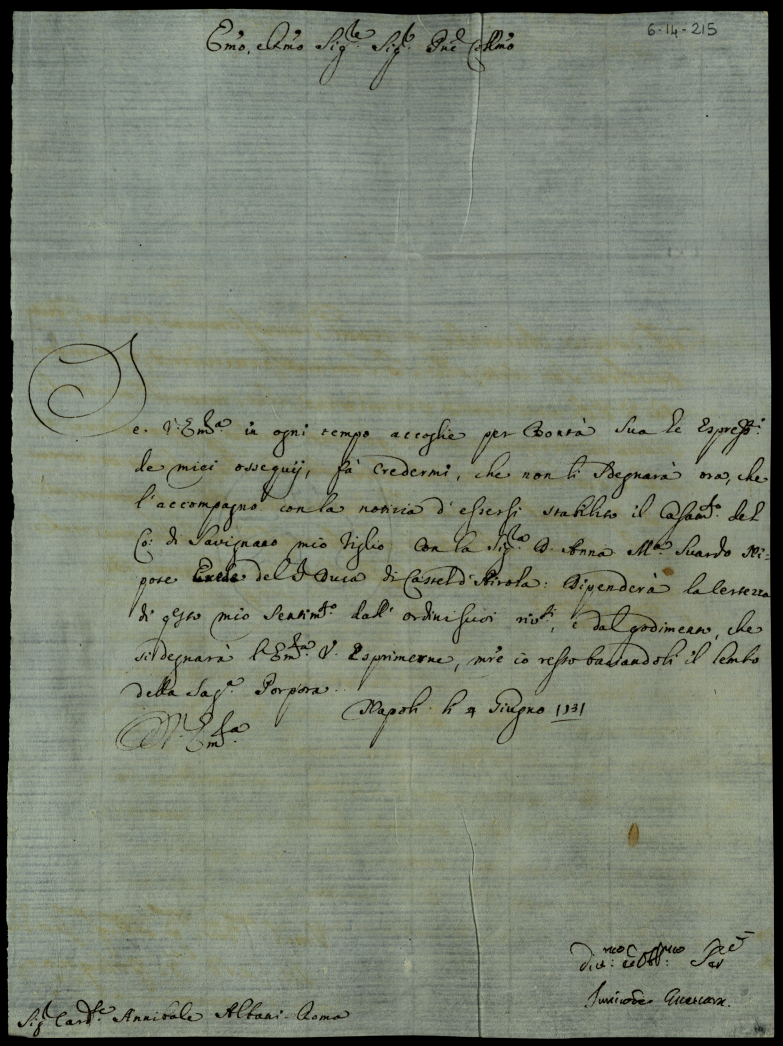 6-14-215
Emo, e Rmo Sigre Sigr Pne Collmo
Se V. Emza in ogni tempo accoglie per Bontà Sua le Espressi:
de miei ossequij, fà credermi, che non li sdegnarà ora, che
l'accompagno con la notizia d'essersi stabilito il Casamto del
Co: di Savignano mio Figlio con la Sigra D. Anna Ma Suardo Ni=
pote Erede del Sr Duca di Castel d'Airola: Dipenderà la Certezza
di qsto mio Sentimto dall' ordini suoi rivti, e dal godimento, che
si degnarà l'Emza V. Esprimerne, mre io resto baciandoli il lembo
della Sagr Porpora.
Napoli li 4 Giugno 1731
D. V. Emza
Sigr Cardle Annibale Albani Roma
Divmo ed Obbmo Ser
Guevara